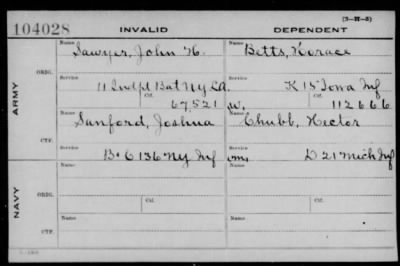 (3-H-5)
104028 INVALID DEPENDENT
ARMY
ORIG.
Name Sawyer, John H. Name Betts, Horace
Service 11 Indpt Bat NY LA. Service K 15 Iowa Inf
Ctf. 67,521 Ctf. 112666
CTF.
Name Sanford, Joshua Name Chubb, Hector
Service B & C 136 NY Inf Service D 21 Mich Inf
NAVY
ORIG.
Name Name
Service Ctf. Service Ctf.
CTF.
Name Name